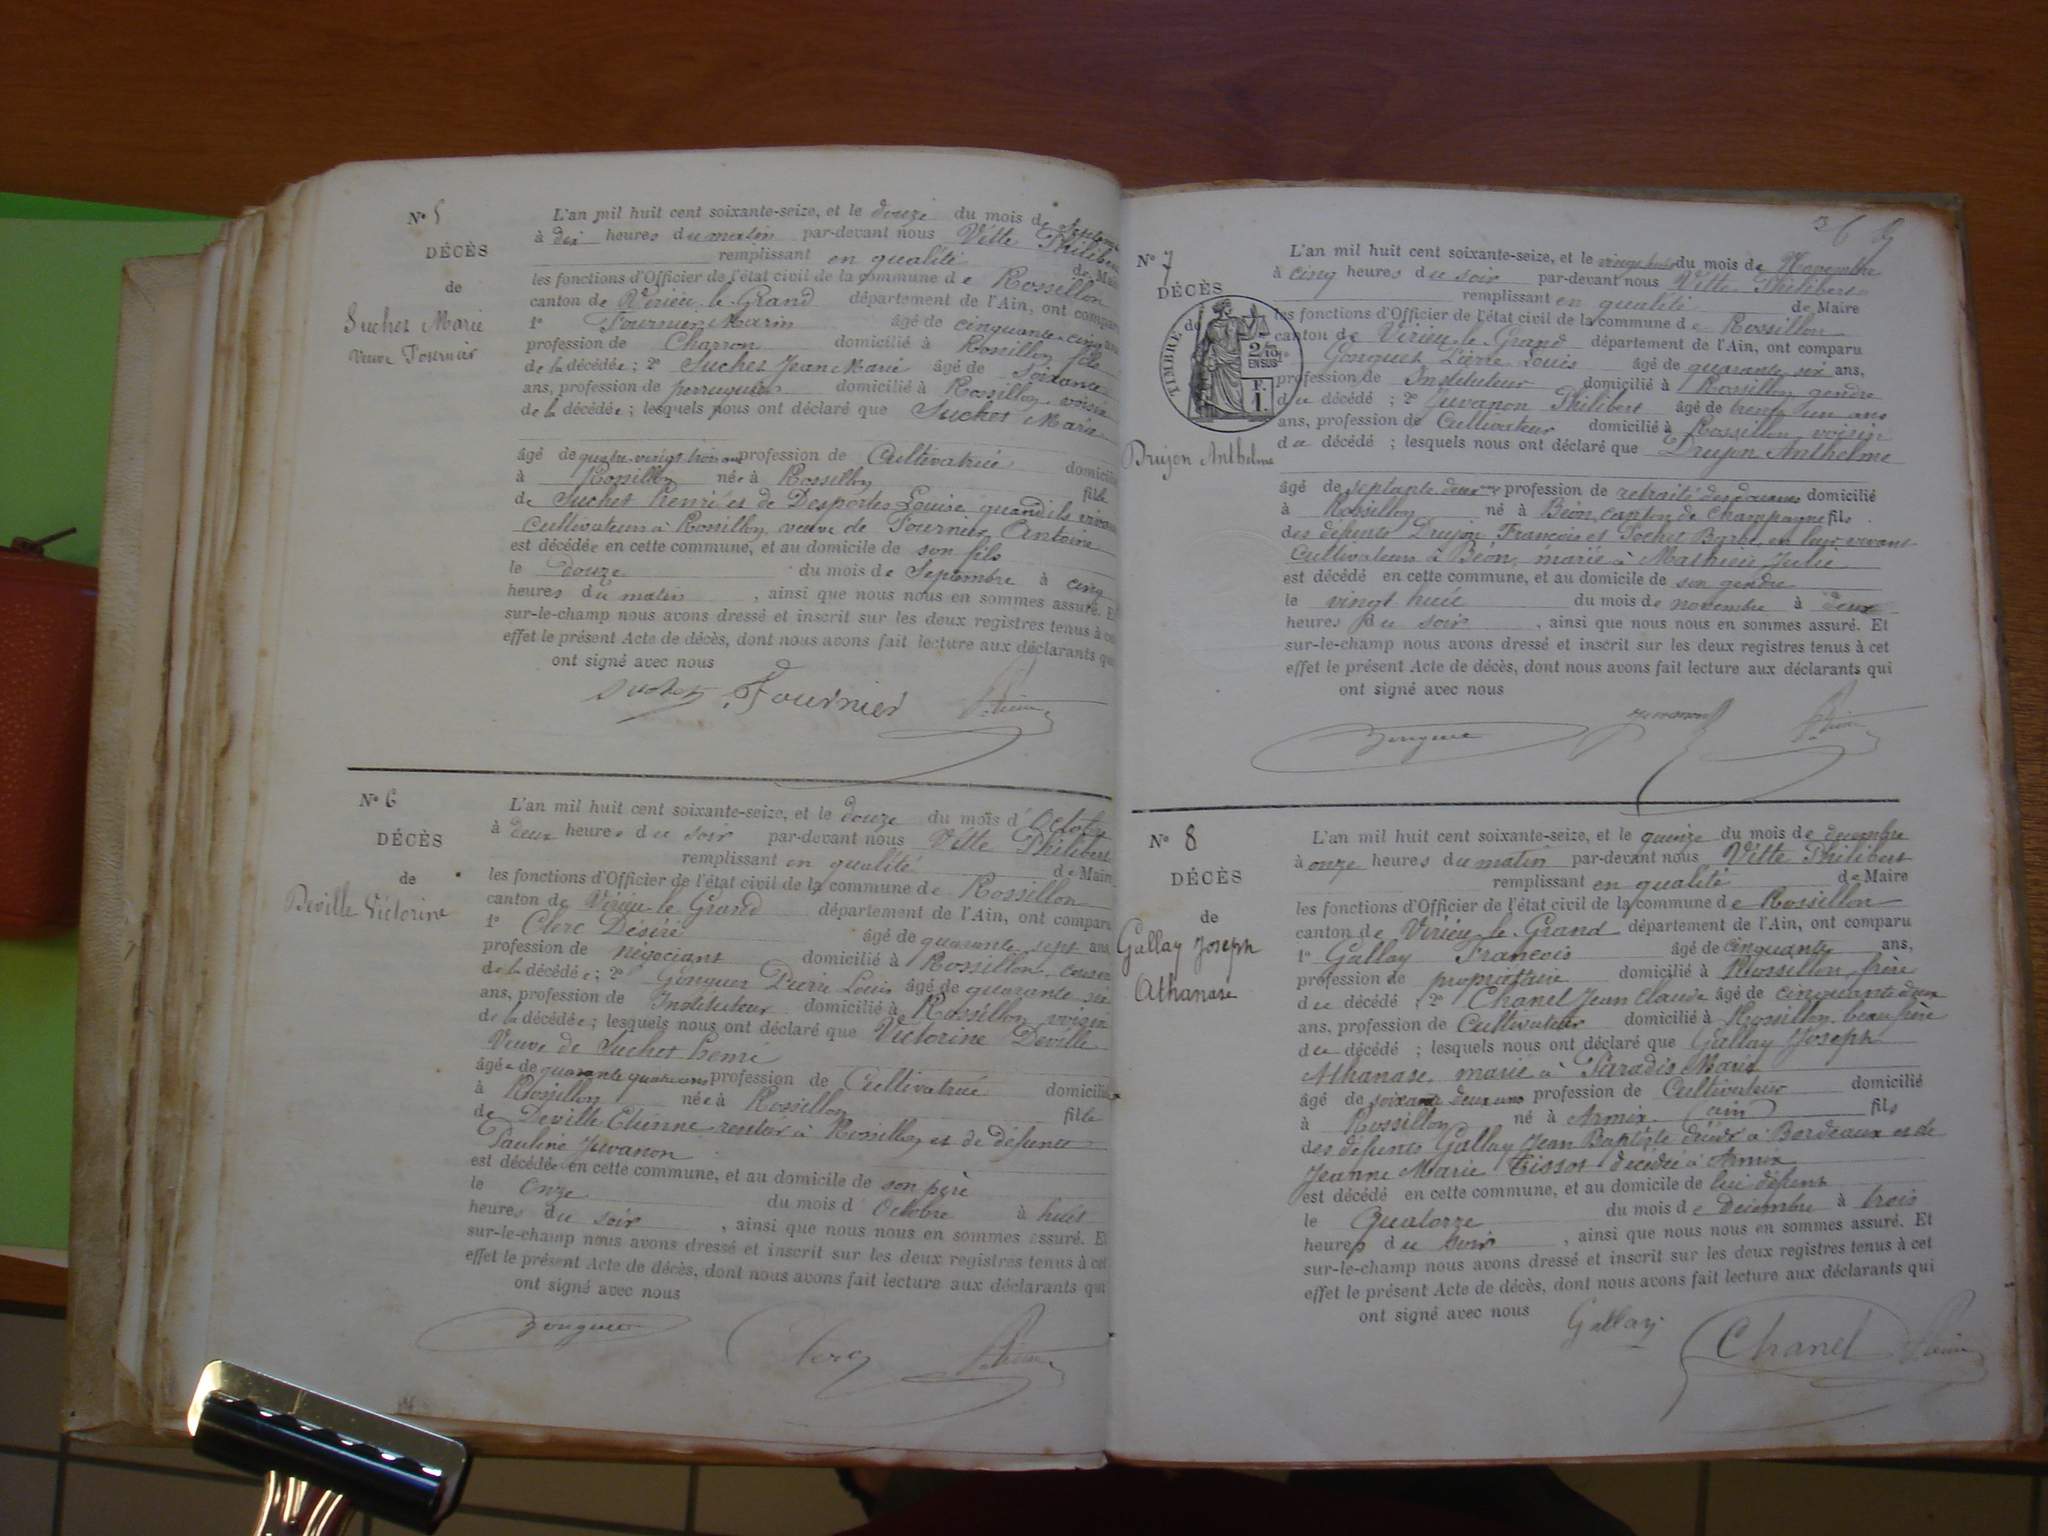 N° 5
DÉCÈS
de
Suchet Marie
Veuve Fournier
L'an mil huit cent soixante-seize, et le douze du mois de Septembre
à dix heures du matin par-devant nous Vette Philibert
remplissant en qualité de Maire
les fonctions d'Officier de l'état civil de la commune de Rossillon
canton de Virieu-le-Grand département de l'Ain, ont comparu
1° Fournier Marin âgé de cinquante-cinq ans
profession de Charron domicilié à Rossillon fils
de la décédée ; 2° Suchet Jean Marie âgé de soixante
ans, profession de perruquier domicilié à Rossillon, voisin
de la décédée ; lesquels nous ont déclaré que Suchet Marie
âgé de quatre-vingt trois ans profession de Cultivatrice domicilié
à Rossillon née à Rossillon fille
de Suchet Henri et de Desportes Louise quand ils vivaient
Cultivateurs à Rossillon, veuve de Fournier Antoine
est décédée en cette commune, et au domicile de son fils
le douze du mois de Septembre à cinq
heures du matin , ainsi que nous nous en sommes assuré. Et
sur-le-champ nous avons dressé et inscrit sur les deux registres tenus à cet
effet le présent Acte de décès, dont nous avons fait lecture aux déclarants qui
ont signé avec nous
Suchet Fournier
N° 6
DÉCÈS
de
Deville Victorine
L'an mil huit cent soixante-seize, et le douze du mois d'Octobre
à deux heures du soir par-devant nous Vette Philibert
remplissant en qualité de Maire
les fonctions d'Officier de l'état civil de la commune de Rossillon
canton de Virieu-le-Grand département de l'Ain, ont comparu
1° Clerc Désiré âgé de quarante-sept ans
profession de négociant domicilié à Rossillon, cousin
de la décédée ; 2° Gonguet Pierre Louis âgé de quarante six
ans, profession de Instituteur domicilié à Rossillon voisin
de la décédée ; lesquels nous ont déclaré que Victorine Deville
Veuve de Suchet Henri
âgée de quarante quatre ans profession de Cultivatrice domicilié
à Rossillon née à Rossillon fille
de Deville Etienne rentier à Rossillon et de défunte
Pauline Juvanon
est décédée en cette commune, et au domicile de son père
le onze du mois d'Octobre à huit
heures du soir , ainsi que nous nous en sommes assuré. Et
sur-le-champ nous avons dressé et inscrit sur les deux registres tenus à cet
effet le présent Acte de décès, dont nous avons fait lecture aux déclarants qui
ont signé avec nous
Gonguet Clerc
36
N° 7
DÉCÈS
TIMBRE de
2/10
EN SUS
F.
1.
Drujon Anthelme
L'an mil huit cent soixante-seize, et le vingt huit du mois de Novembre
à cinq heures du soir par-devant nous Vette Philibert
remplissant en qualité de Maire
les fonctions d'Officier de l'état civil de la commune de Rossillon
canton de Virieu-le-Grand département de l'Ain, ont comparu
1° Gonguet Pierre Louis âgé de quarante six ans,
profession de Instituteur domicilié à Rossillon gendre
du décédé ; 2° Juvanon Philibert âgé de trente un ans
ans, profession de Cultivateur domicilié à Rossillon voisin
du décédé ; lesquels nous ont déclaré que Drujon Anthelme
âgé de septante deux ans profession de retraité des douanes domicilié
à Rossillon né à Béon, canton de Champagne fils
des défunts Drujon François et Pochet en leur vivant
Cultivateurs à Béon, marié à Mathieu Julie
est décédé en cette commune, et au domicile de son gendre
le vingt huit du mois de novembre à deux
heures du soir , ainsi que nous nous en sommes assuré. Et
sur-le-champ nous avons dressé et inscrit sur les deux registres tenus à cet
effet le présent Acte de décès, dont nous avons fait lecture aux déclarants qui
ont signé avec nous
Gonguet Juvanon
N° 8
DÉCÈS
de
Gallay Joseph
Athanase
L'an mil huit cent soixante-seize, et le quinze du mois de décembre
à onze heures du matin par-devant nous Vette Philibert
remplissant en qualité de Maire
les fonctions d'Officier de l'état civil de la commune de Rossillon
canton de Virieu-le-Grand département de l'Ain, ont comparu
1° Gallay François âgé de cinquante ans,
profession de propriétaire domicilié à Rossillon, frère
du décédé 2° Chanel Jean Claude âgé de cinquante deux
ans, profession de Cultivateur domicilié à Rossillon, beau frère
du décédé ; lesquels nous ont déclaré que Gallay Joseph
Athanase, marié à Paradis Marie
âgé de soixante deux ans profession de Cultivateur domicilié
à Rossillon né à Armix (ain) fils
des défunts Gallay Jean Baptiste décédé à Bordeaux et de
Jeanne Marie Tissot décédée à Armix
est décédé en cette commune, et au domicile de lui défunt
le Quatorze du mois de Décembre à trois
heures du soir , ainsi que nous nous en sommes assuré. Et
sur-le-champ nous avons dressé et inscrit sur les deux registres tenus à cet
effet le présent Acte de décès, dont nous avons fait lecture aux déclarants qui
ont signé avec nous Gallay
Chanel